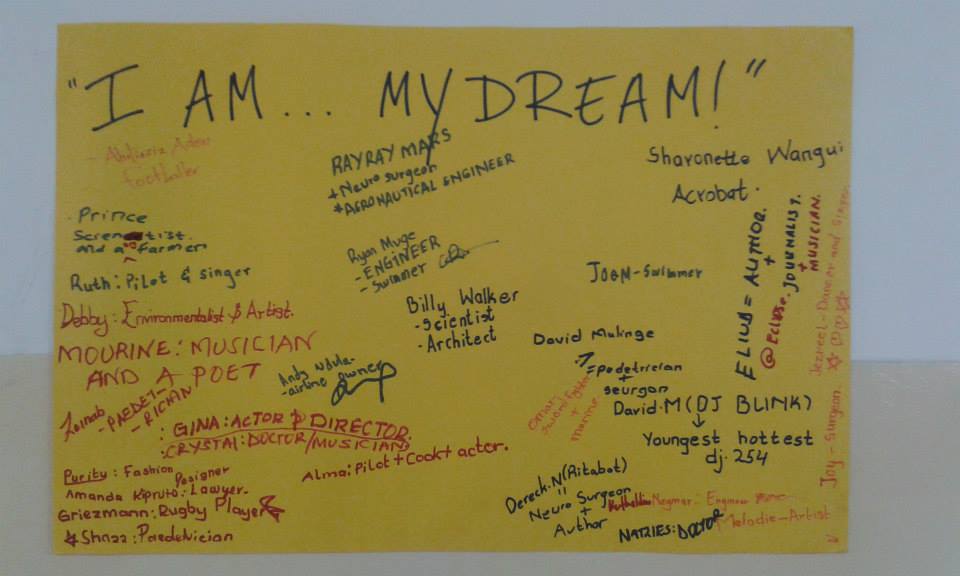 "I AM... MY DREAM!"
footballer
RAYRAY MARS
+Neuro surgeon
*AERONAUTICAL ENGINEER
Sharonette Wangui
Acrobat.
Prince
and a farmer
Ruth: Pilot & singer
Debby: Environmentalist & Artist.
MOURINE: MUSICIAN
AND A POET
Zainab
-PAEDET-
-RICIAN
Ryan Muge
-ENGINEER
-Swimmer
Billy Walker
-Scientist
-Architect
Andy Ndula-
-airline owner
: GINA: ACTOR & DIRECTOR
:CRYSTAL: DOCTOR/MUSICIAN
Purity: Fashion Designer
Amanda Kipruto: Lawyer.
Griezmann: Rugby Player
Shnaa: Paedetrician
Alma: Pilot + Cook + actor.
-Swimmer
ELIUD = AUTHOR.
+
@ECLIPSE. JOURNALIST.
+
MUSICIAN.
Jezreel-Dancer and Singer
Joy - Surgeon.
David Mulinge
=pedetrician
+
seurgon
Omari
+
marine
David.M(DJ BLINK)
Youngest hottest
dj. 254
Dereck.N(Ritabot)
"
Neuro Surgeon
+
Author
Neymar: Engineer
NATRIES: DOCTOR
Melodie-Artist